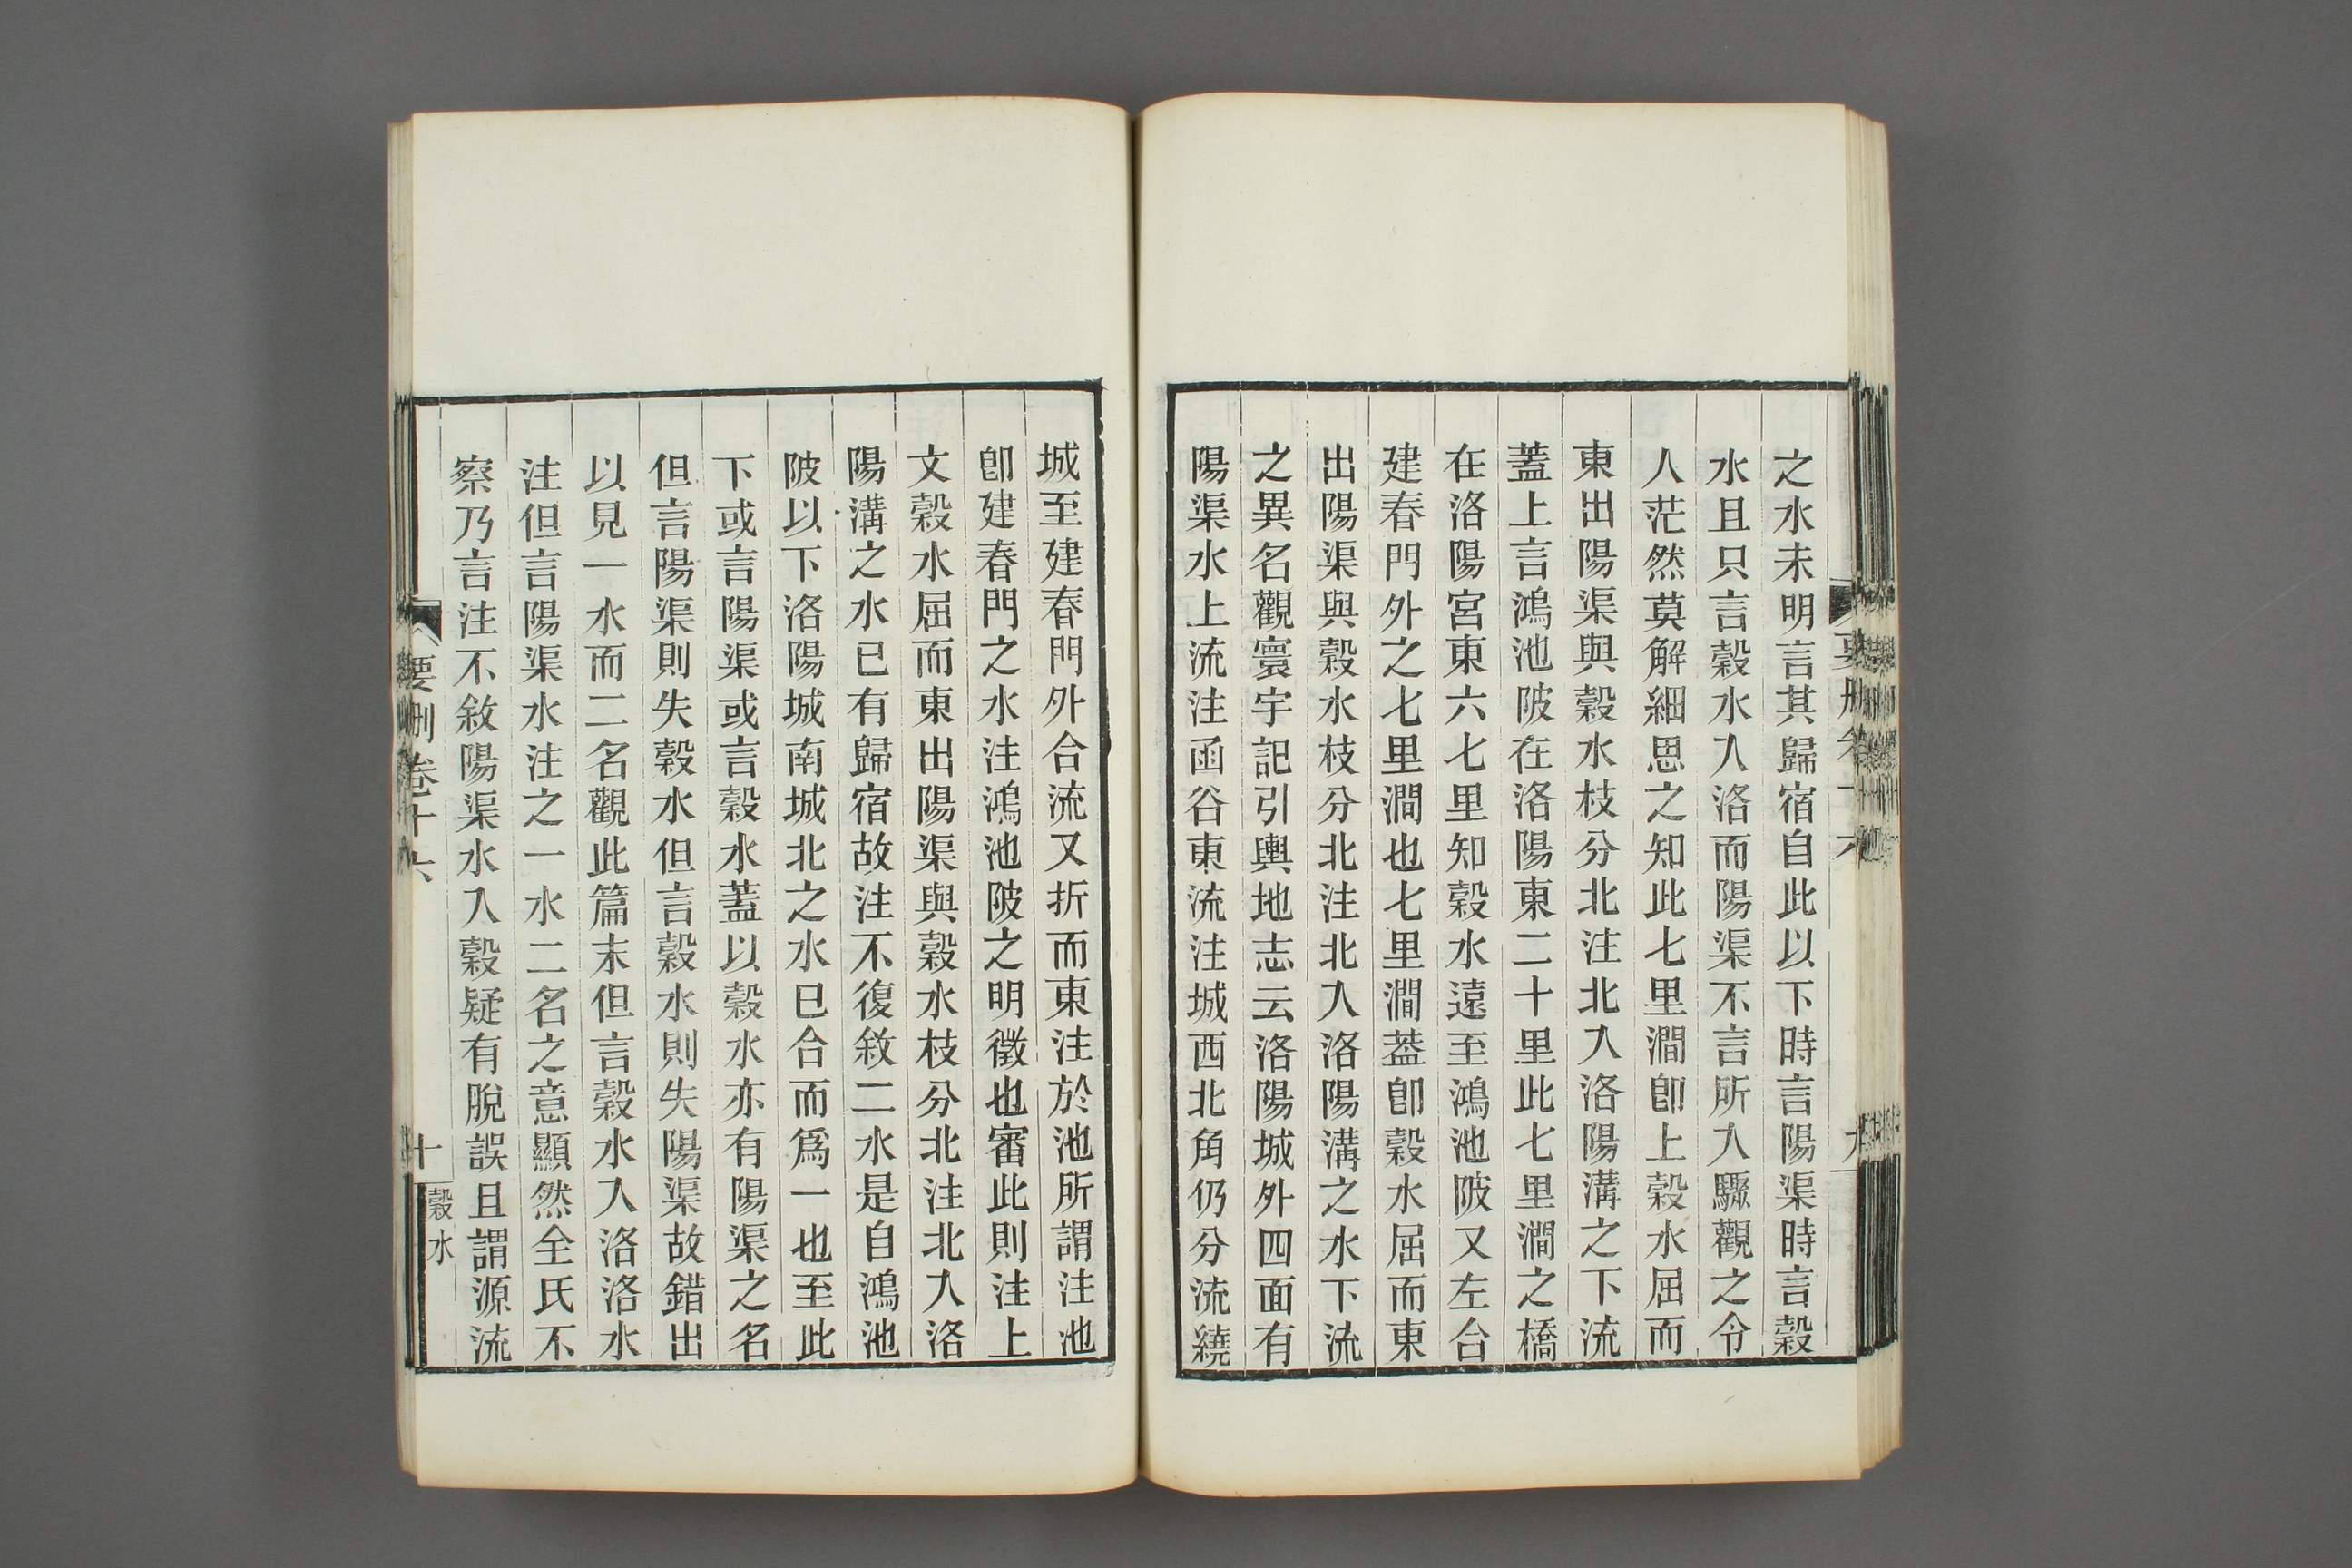 之水未明言其歸宿自此以下時言陽渠時言穀
水且只言穀水入洛而陽渠不言所入驟觀之令
人茫然莫解細思之知此七里澗卽上穀水屈而
東出陽渠與穀水枝分北注北入洛陽溝之下流
蓋上言鴻池陂在洛陽東二十里此七里澗之橋
在洛陽宮東六七里知穀水遠至鴻池陂又左合
建春門外之七里澗也七里澗葢卽穀水屈而東
出陽渠與穀水枝分北注北入洛陽溝之水下流
之異名觀寰宇記引輿地志云洛陽城外四面有
陽渠水上流注函谷東流注城西北角仍分流繞
城至建春門外合流又折而東注於池所謂注池
卽建春門之水注鴻池陂之明徵也審此則注上
文穀水屈而東出陽渠與穀水枝分北注北入洛
陽溝之水已有歸宿故注不復敘二水是自鴻池
陂以下洛陽城南城北之水已合而爲一也至此
下或言陽渠或言穀水蓋以穀水亦有陽渠之名
但言陽渠則失穀水但言穀水則失陽渠故錯出
以見一水而二名觀此篇末但言穀水入洛洛水
注但言陽渠水注之一水二名之意顯然全氏不
察乃言注不敘陽渠水入穀疑有脫誤且謂源流
要刪卷十六
十
穀水